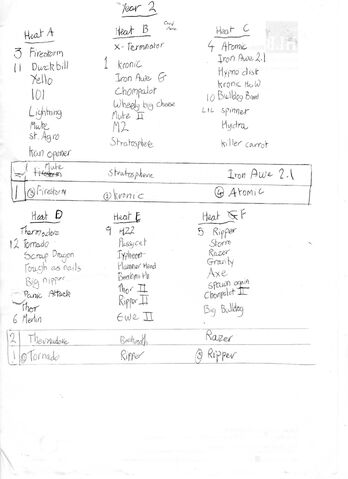 Year 2
Heat A Heat B Heat C
3 Firestorm X-Terminator 4 Atomic
11 Duckbill 1 Kronic Iron Awe 2.1
Yello Iron Awe 6 Hypno disk
101 Chompalot Kronic the W
Lightning Wheely big cheese 10 Bulldog Breed
Mute Mute II Lil spinner
St. Agro M2 Hydra
Kan opener Stratosphere killer carrot
Mute Stratosphere Iron Awe 2.1
1 Firestorm Kronic Atomic
Heat D Heat E Heat F
Thermadore 9 M22 5 Ripper
12 Tornado Pussycat Storm
Scrap Dragon Typhoon Razer
Tough as nails Hammer Head Gravity
Big nipper Behemoth Axe
Panic Attack Thor II Spawn again
Thor Ripper II Chompalot II
6 Merlin EWE II Big Bulldog
2 Thermadore Razer
1 Tornado Ripper Ripper